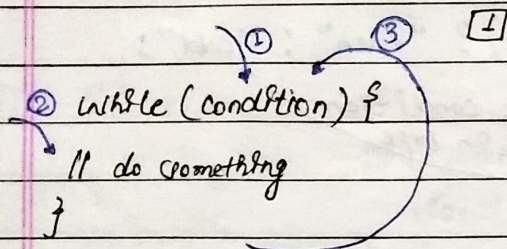 1
① ③
② while (condition) {
// do something
}